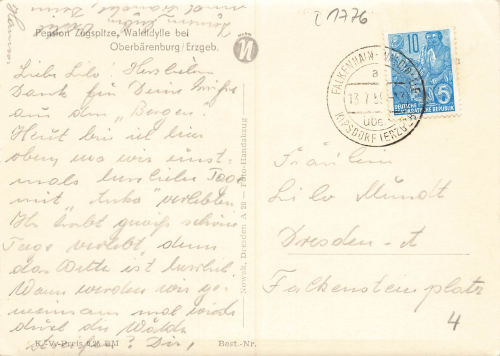 Pension Zugspitze, Waldidylle bei
Oberbärenburg/Erzgeb.
Liebe Lilo! Herzlichen
Dank für Deine Grüße
aus den "Bergen".
Heut bin ich hier
oben wo wir einst-
mals herrliche Tage
mit "Anka" verlebten.
Ihr habt gewiß schöne
Tage verlebt, denn
das Wetter ist herrlich.
Wann werden wir ge-
meinsam mal wieder
durch die Wälder
Dir,
K/V-Preis 0,20 DM
Best.-Nr.
Nowak, Dresden A 20 — Foto-Handabzug
1776
FALKENHAIN-
a
13.7.55
über
KIPSDORF (ERZGEB)
10
5
DEUTSCHE
DEMOKRATISCHE REPUBLIK
Fräulein
Lilo Mundt
Dresden-A
Falkensteinplatz
4